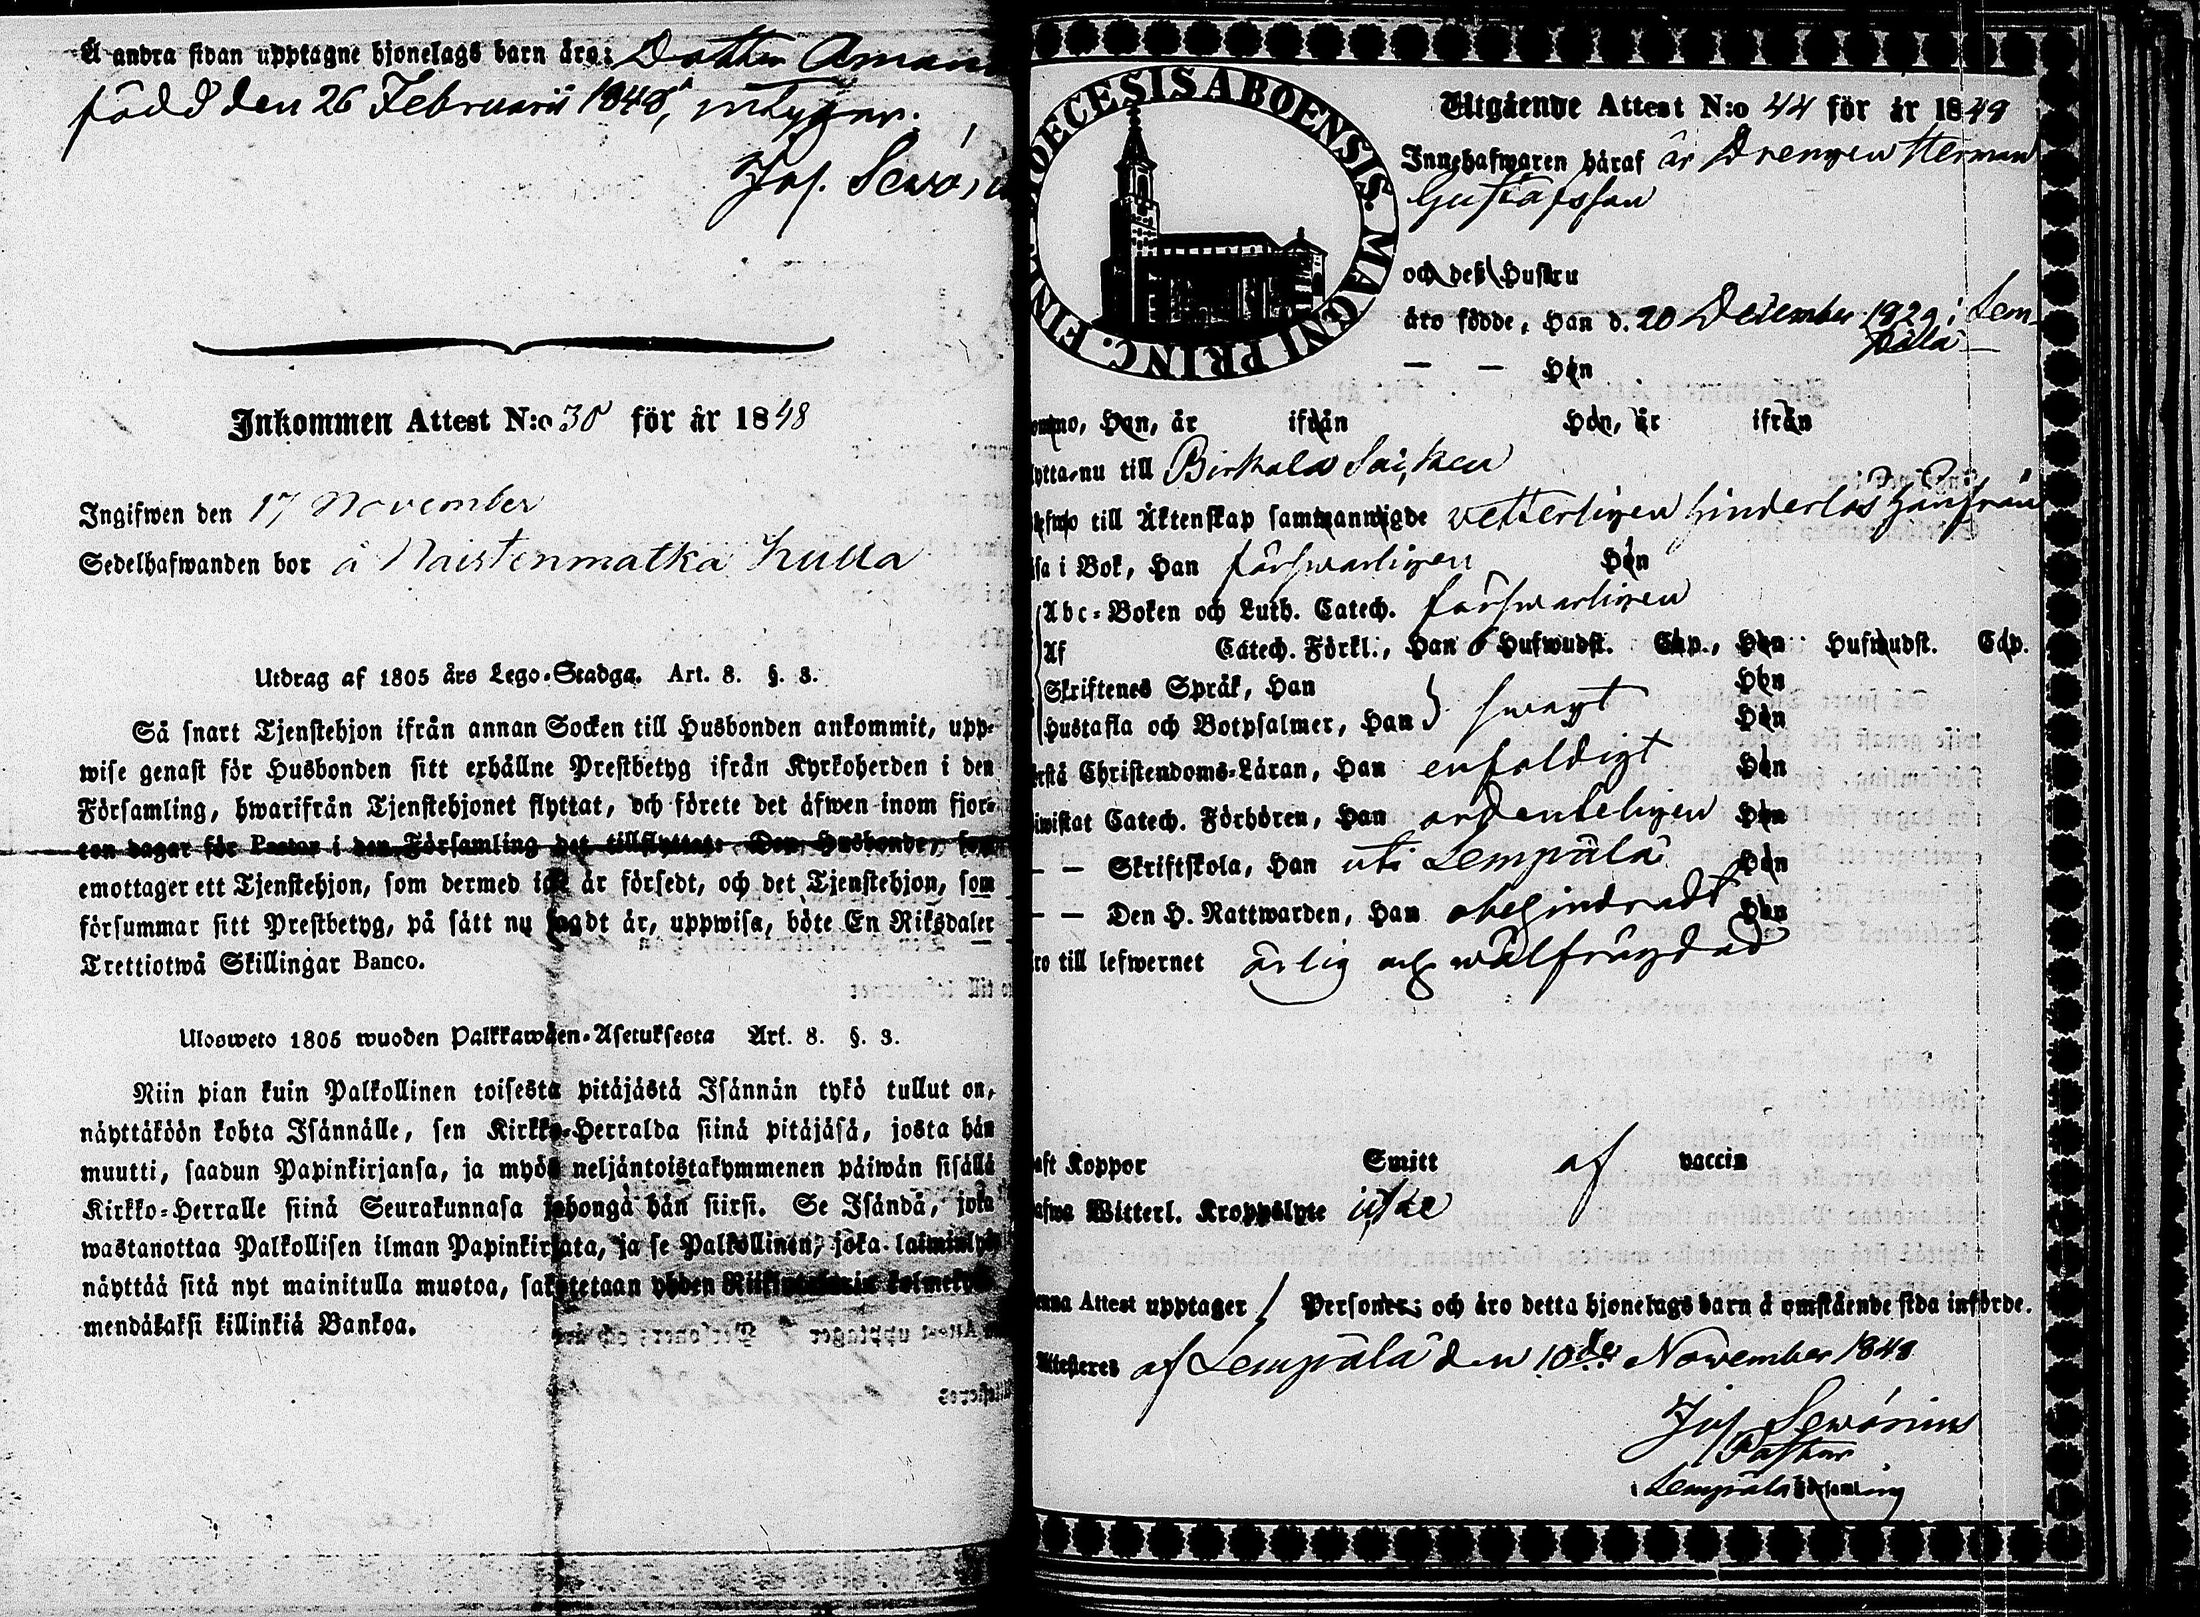 Å andra sidan upptagne hjonelags barn äro: Dottren Aman
född den 26 Februarii 1848, intygar.
Jos. Sevón
Inkommen Attest N:o 38 för år 1848
Ingifwen den 17 November
Sedelhafwanden bor å Naistenmatka Kulla
Utdrag af 1805 års Lego-Stadga. Art. 8. §. 3.
Så snart Tjenstehjon ifrån annan Socken till Husbonden ankommit, upp-
wise genast för Husbonden sitt erhållne Prestbetyg ifrån Kyrkoherden i den
Församling, hwarifrån Tjenstehjonet flyttat, och förete det äfwen inom fjor-
ton dagar för Pastor i den Församling det tillflyttat. Den Husbonde, som
emottager ett Tjenstehjon, som dermed icke är försedt, och det Tjenstehjon, som
försummar sitt Prestbetyg, på sätt nu sagdt är, uppwisa, böte En Riksdaler
Trettiotwå Skillingar Banco.
Ulosweto 1805 wuoden Palkkawäen-Asetuksesta Art. 8. §. 3.
Niin pian kuin Palkollinen toisesta pitäjästä Isännän tykö tullut on,
näyttäköön kohta Isännälle, sen Kirkko-Herralda siinä pitäjäsä, josta hän
muutti, saadun Papinkirjansa, ja myös neljäntoistakymmenen päiwän sisällä
Kirkko-Herralle siinä Seurakunnasa johonga hän siirsi. Se Isändä, joka
wastanottaa Palkollisen ilman Papinkirjata, ja se Palkollinen, joka laiminlyö
näyttää sitä nyt mainitulla muotoa, sakotetaan yhden Riiksdalerin kolmekym-
mendäkaksi killinkiä Bankoa.
DIOECESIS ABOENSIS. MAGNI PRINC. FIN
Utgående Attest N:o 44 för år 1848
Innehafwaren häraf är Drengen Herman
Gustafsson
och dess Hustru
äro födde, Han d. 20 December 1829 i Lem-
päla
— — Hon
Han, är ifrån Hon, är ifrån
flytta nu till Birkala Socken
till Äktenskap sammanwigde vetterligen hinderlös härifrån
läsa i Bok, Han försvarligen Hon
Abc-Boken och Luth. Catech. försvarligen
Af Catech. Förkl., Han 6 Hufwudst. Cap., Hon Hufwudst. Cap.
Skriftenes Språk, Han Hon
Hustafla och Botpsalmer, Han } swagt Hon
förstå Christendoms-Läran, Han enfaldigt Hon
biwistat Catech. Förhören, Han ordenteligen Hon
— — Skriftskola, Han uti Lempälä Hon
— — Den H. Nattwarden, Han obehindradt Hon
äro till lefwernet ärlig och wälfrägdad
haft Koppor Smitt af vaccin
hafwa Witterl. Kroppslyte icke
Denna Attest upptager 1 Personer; och äro detta hjonelags barn å omstående sida införde.
Attesteres af Lempälä den 10de November 1848
Jos Sevónius
Pastor
i Lempälä Församling